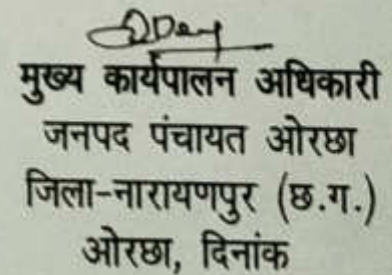 मुख्य कार्यपालन अधिकारी
जनपद पंचायत ओरछा
जिला-नारायणपुर (छ.ग.)
ओरछा, दिनांक